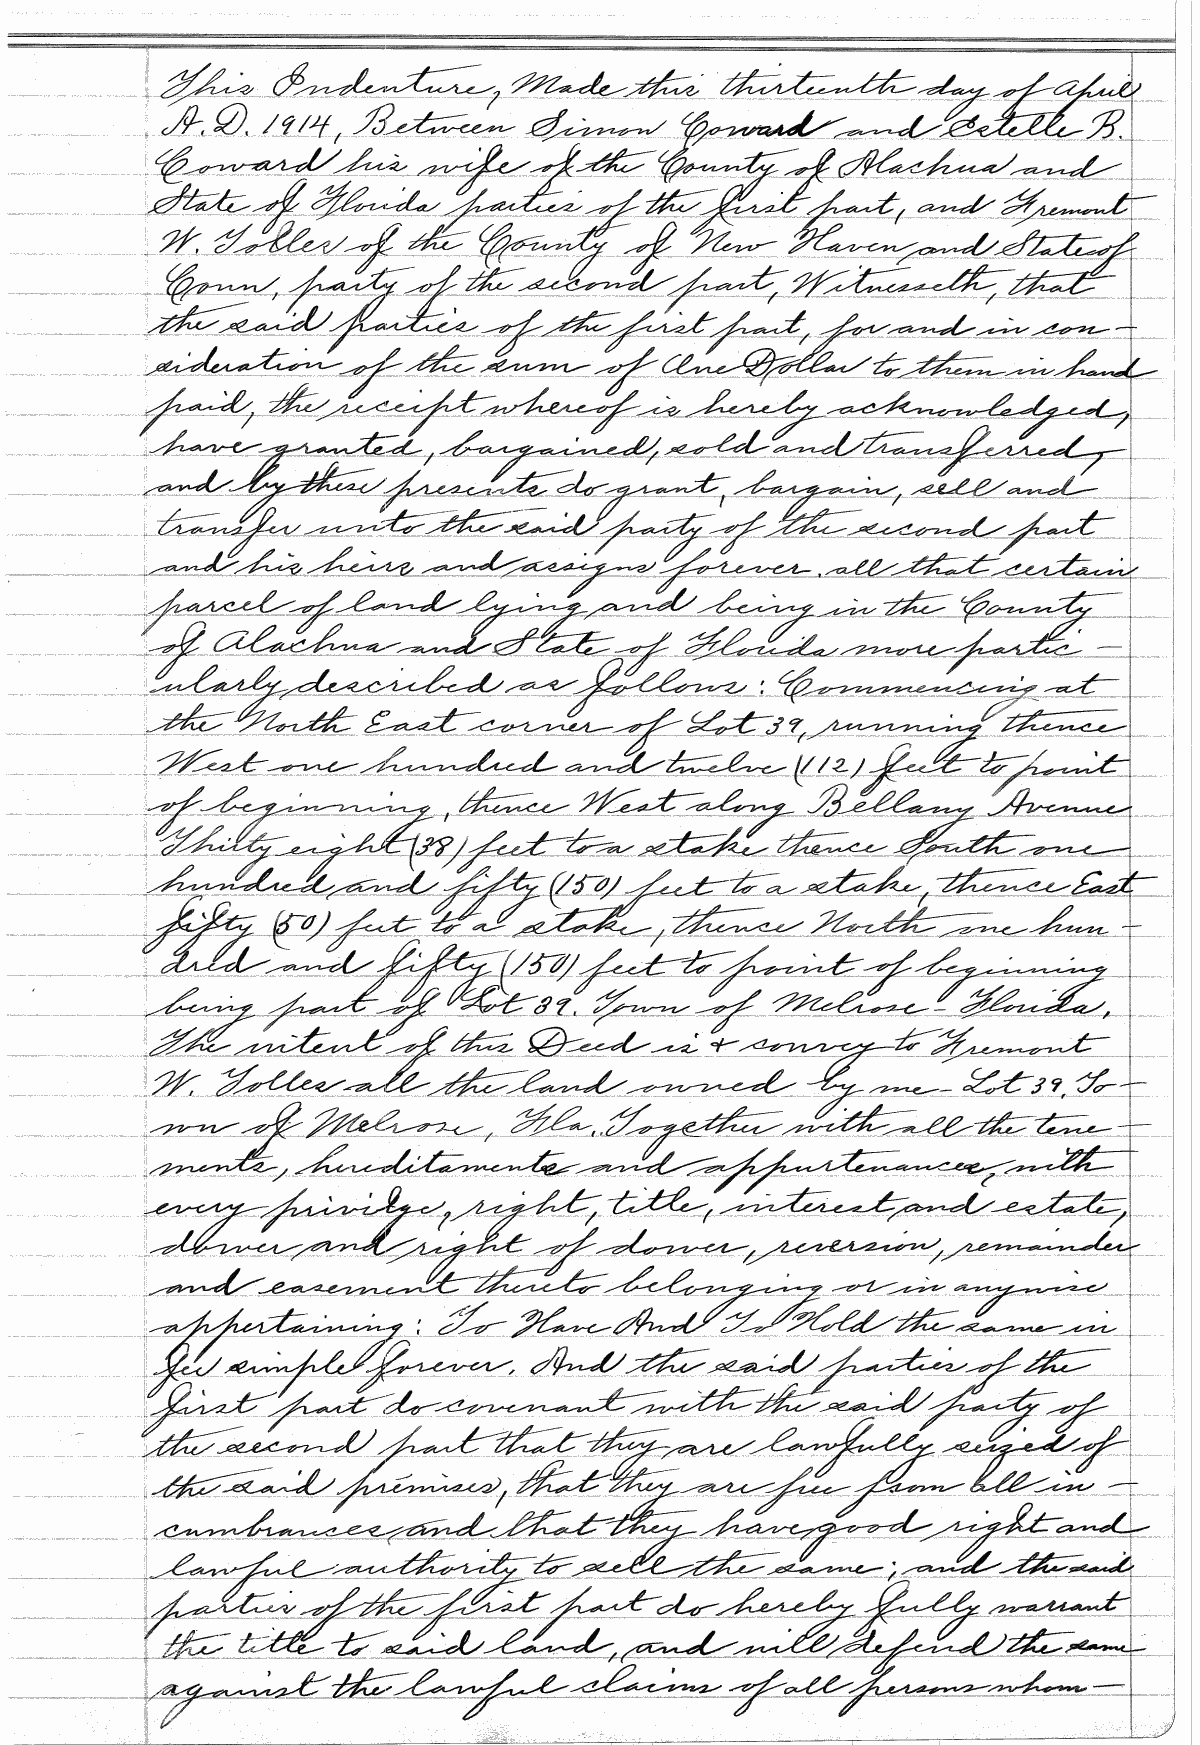 This Indenture, Made this thirteenth day of April
A.D. 1914, Between Simon Coward and Estelle B.
Coward his wife of the County of Alachua and
State of Florida parties of the first part, and Fremont
W. Tolles of the County of New Haven and State of
Conn, party of the second part, Witnesseth, that
the said parties of the first part, for and in con-
sideration of the sum of One Dollar to them in hand
paid, the receipt whereof is hereby acknowledged,
have granted, bargained, sold and transferred,
and by these presents do grant, bargain, sell and
transfer unto the said party of the second part
and his heirs and assigns forever all that certain
parcel of land lying and being in the County
of Alachua and State of Florida more partic-
ularly described as follows: Commencing at
the North East corner of Lot 39, running thence
West one hundred and twelve (112) feet to point
of beginning, thence West along Bellany Avenue
Thirty eight (38) feet to a stake thence South one
hundred and fifty (150) feet to a stake, thence East
fifty (50) feet to a stake, thence North one hun-
dred and fifty (150) feet to point of beginning
being part of Lot 39. Town of Melrose - Florida.
The intent of this Deed is & convey to Fremont
W. Tolles all the land owned by me - Lot 39, To-
wn of Melrose, Fla. Together with all the tene-
ments, hereditaments and appurtenances, with
every privilge, right, title, interest and estate,
dower and right of dower, reversion, remainder
and easement thereto belonging or in anywise
appertaining: To Have And To Hold the same in
fee simple forever. And the said parties of the
first part do covenant with the said party of
the second part that they are lawfully seized of
the said premises, that they are free from all in-
cumbrances, and that they have good right and
lawful authority to sell the same; and the said
parties of the first part do hereby fully warrant
the title to said land, and will defend the same
against the lawful claims of all persons whom-